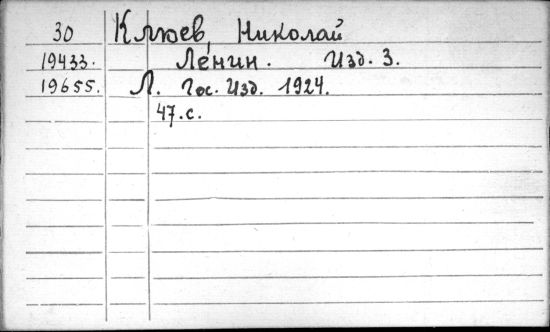 30 Клюев, Николай
19433. Ленин. Изд. 3.
19655. Л. Гос. Изд. 1924.
47.с.